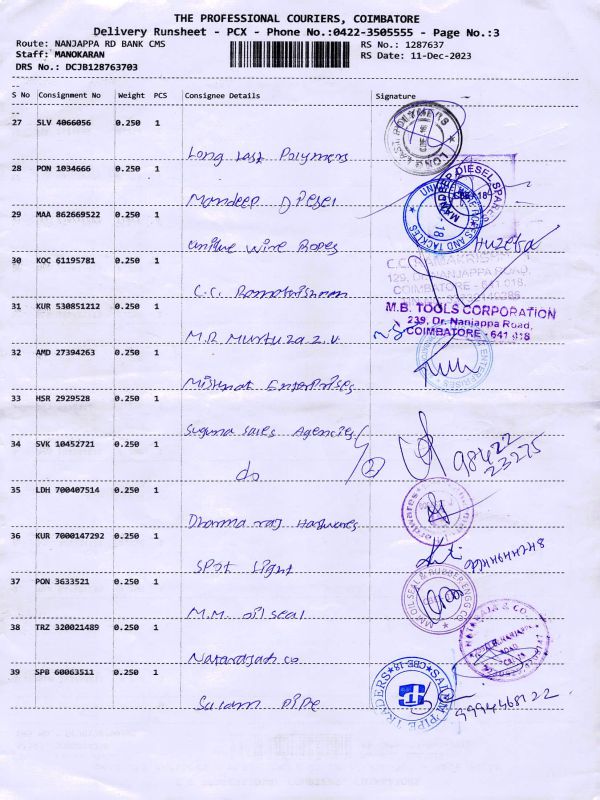 THE PROFESSIONAL COURIERS, COIMBATORE
Delivery Runsheet - PCX - Phone No.:0422-3505555 - Page No.:3
Route: NANJAPPA RD BANK CMS RS No.: 1287637
Staff: MANOKARAN RS Date: 11-Dec-2023
DRS No.: DCJB128763703
S No Consignment No Weight PCS Consignee Details Signature
27 SLV 4066056 0.250 1
Long Last Polymers
28 PON 1034666 0.250 1
Mandeep Diesel
29 MAA 862669522 0.250 1
Unique Wire Ropes Huzefa
30 KOC 61195781 0.250 1
C.C. RAMAKRISHNAN
129, DR. NANJAPPA ROAD,
COIMBATORE - 641 018.
C.C. Ramakrishnan
31 KUR 530851212 0.250 1
M.B. TOOLS CORPORATION
239, Dr. Nanjappa Road,
COIMBATORE - 641 018
M.R. Murtuza Z.V
32 AMD 27394263 0.250 1
Mishkat Enterprises
33 HSR 2929528 0.250 1
Suguna Sales Agencies
34 SVK 10452721 0.250 1
do 2 98422
23275
35 LDH 700407514 0.250 1
Dharma raj Hardwares
36 KUR 7000147292 0.250 1
Spot Light
37 PON 3633521 0.250 1
MM OIL SEAL & RUBBER ENGG CO
M.M. oil seal
38 TRZ 320021489 0.250 1
NATARAJA & CO.
Nataraja & co
39 SPB 60063511 0.250 1
SALEM PIPE TRADERS CBE-18
Salam Pipe 9994468122